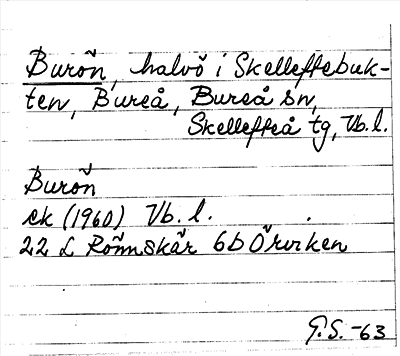 Burön, halvö i Skelleftebuk-
ten, Bureå, Bureå sn,
Skellefteå tg, Vb. l.
Burön
ek (1960) Vb. l.
22 L Rönnskär 6b Örviken
G.S.-63